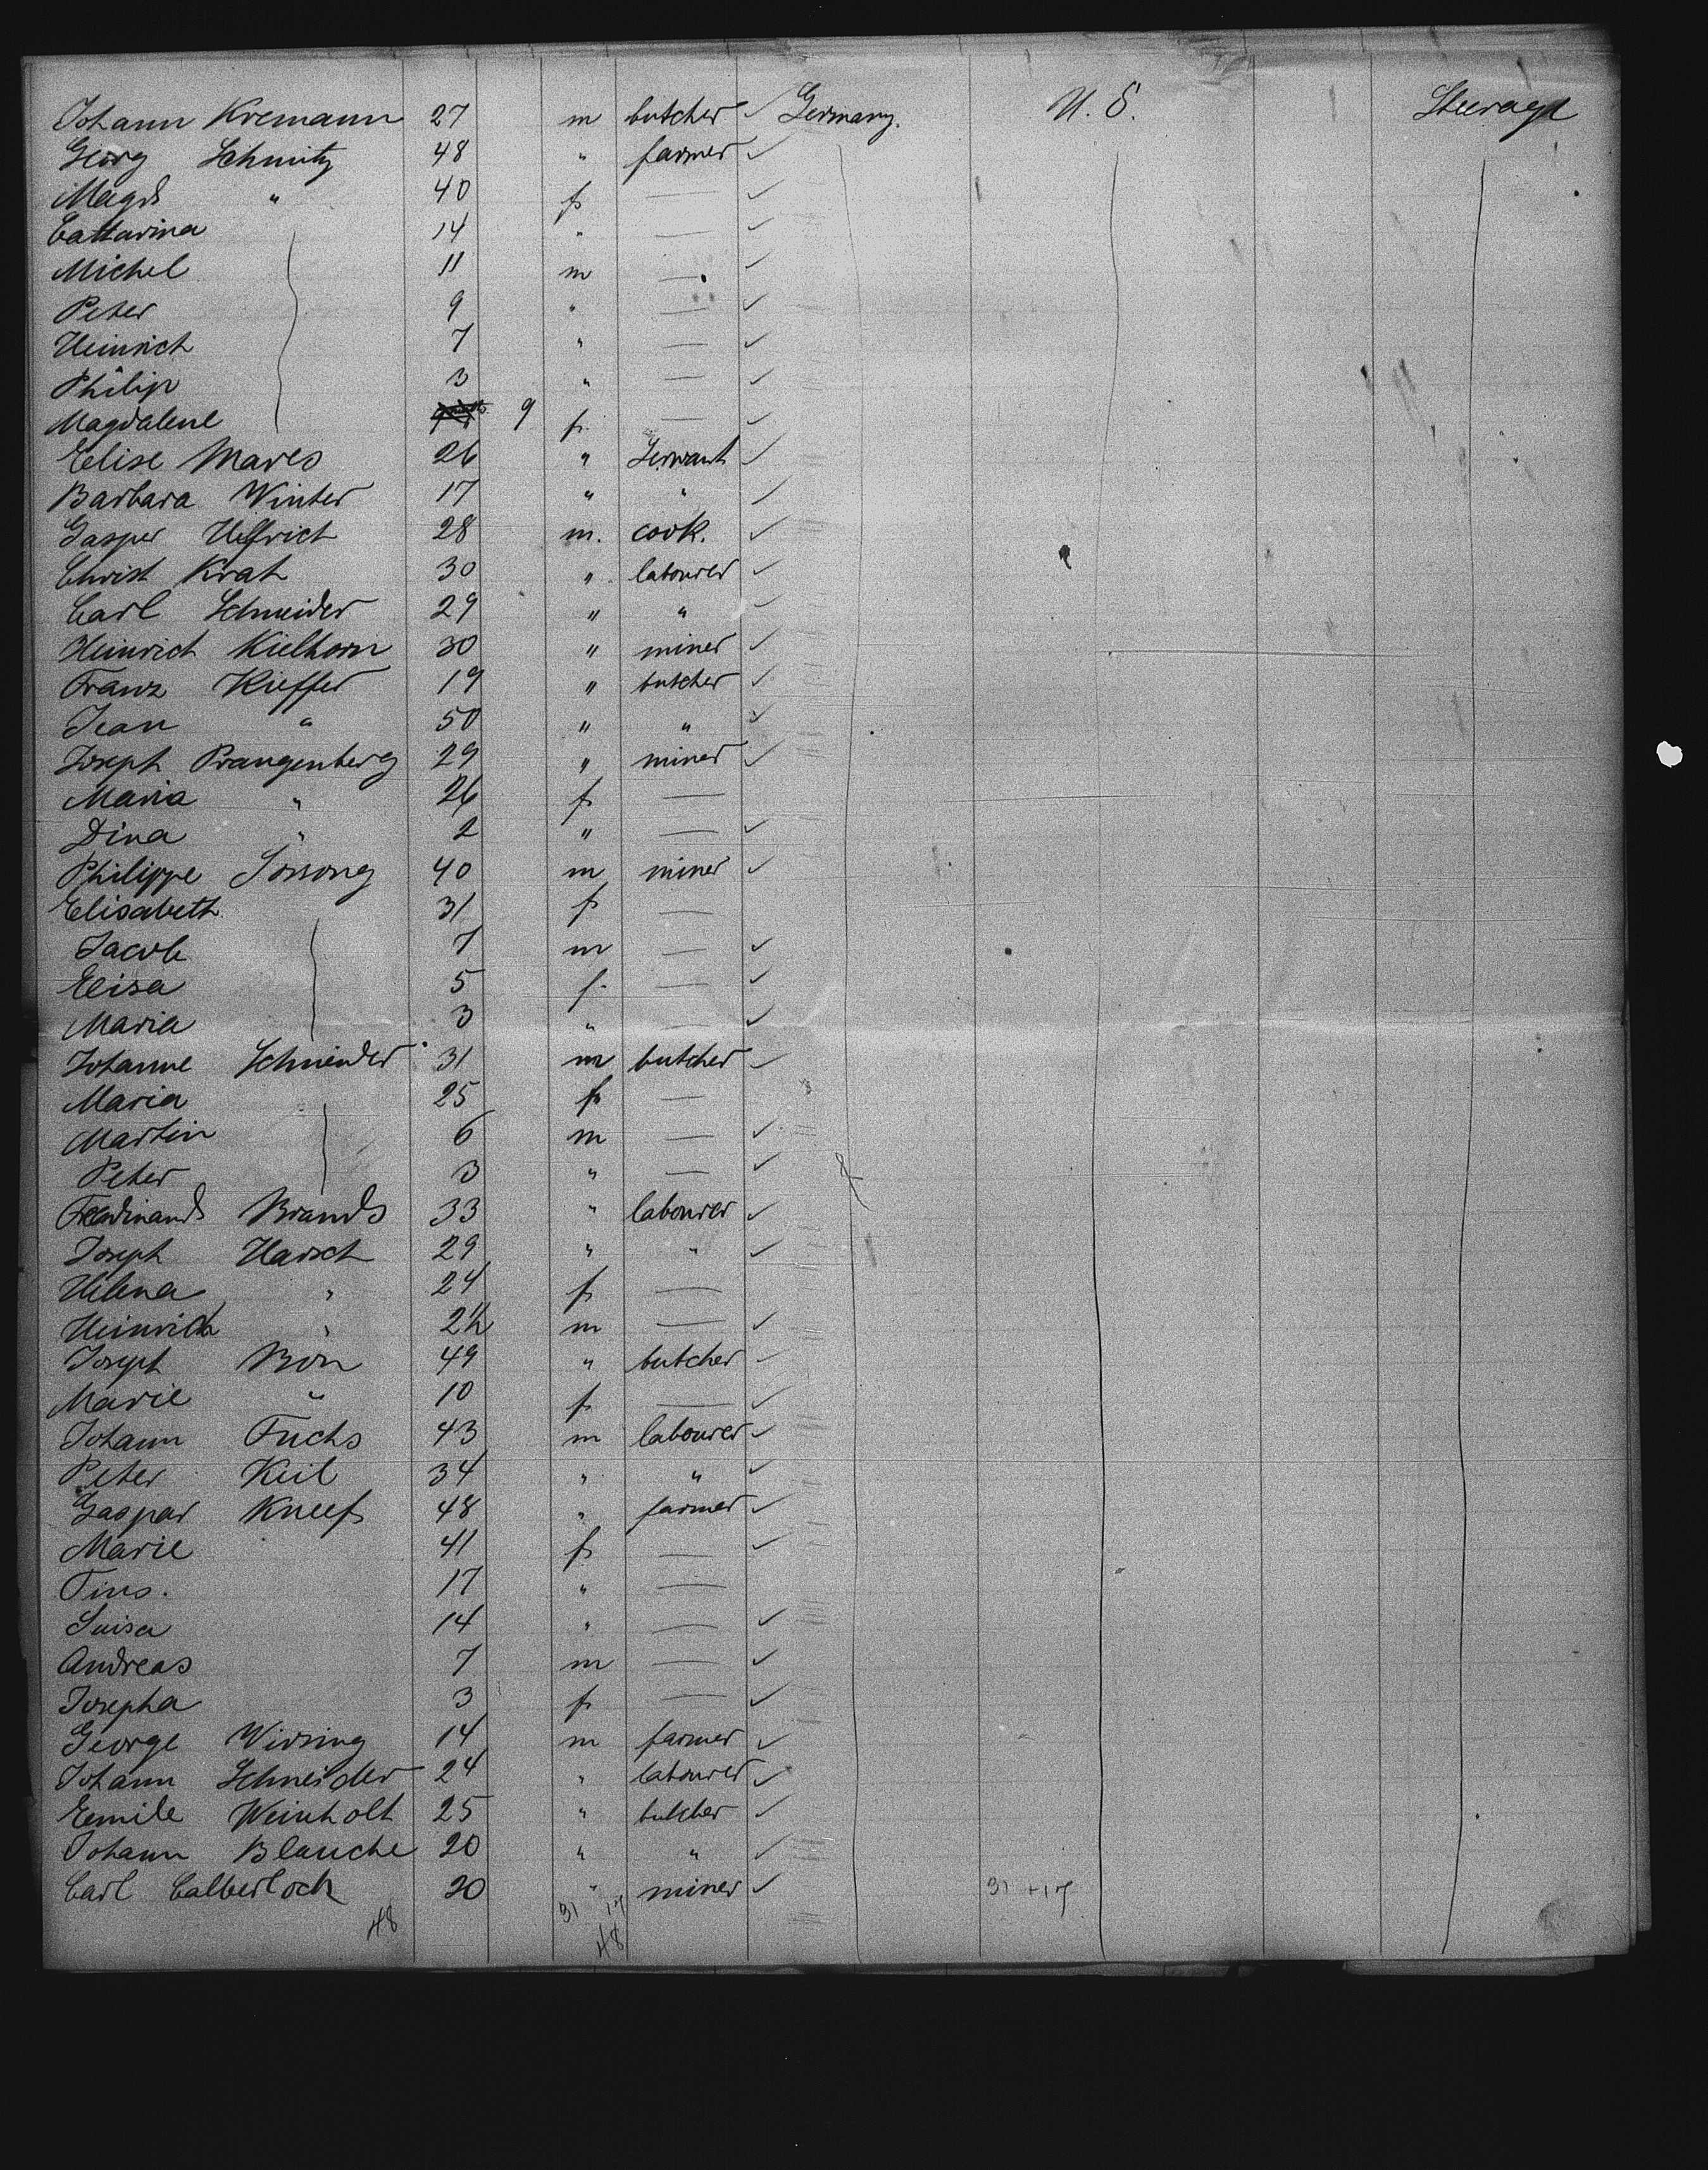 Johann Kremann 27 m butcher ✓ Germany. U. S. Steerage
Georg Schmitz 48 " farmer ✓
Magd " 40 f — ✓
Cattarina 14 " — ✓
Michel 11 m — ✓
Peter 9 " — ✓
Heinrich 7 " — ✓
Philip 3 " — ✓
Magdalene 9 f — ✓
Elise Mares 26 " Servant ✓
Barbara Winter 17 " " ✓
Gasper Helfrich 28 m. cook. ✓
Christ Krah 30 " labourer ✓
Carl Schneider 29 " " ✓
Heinrich Kielhorn 30 " miner ✓
Franz Kieffer 19 " butcher ✓
Jean " 50 " " ✓
Joseph Prangenberg 29 " miner ✓
Maria " 26 f —
Dina " 2 " — ✓
Philippe 40 m miner ✓
Elisabeth 31 f —
Jacob 7 m — ✓
Elisa 5 f. — ✓
Maria 3 " — ✓
Johanne Schneider 31 m butcher ✓
Maria 25 f —
Martin 6 m — ✓
Peter 3 " — ✓
Ferdinand Brands 33 " labourer ✓
Joseph Harsch 29 " " ✓
Helena " 24 f —
Heinrich " 2½ m — ✓
Joseph Bon 49 " butcher ✓
Marie " 10 f — ✓
Johann Fuchs 43 m labourer ✓
Peter Keil 34 " " ✓
Gaspar Kneef 48 " farmer ✓
Marie 41 f — ✓
17 " —
Luisa 14 " — ✓
Andreas 7 m — ✓
Josepha 3 f — ✓
George Wirsing 14 m farmer ✓
Johann Schneider 24 " labourer ✓
Emile Weinholt 25 " butcher ✓
Johann Blauche 20 " " ✓
Carl Calberloch 20 " miner ✓ 31 + 17
48 31 17
48